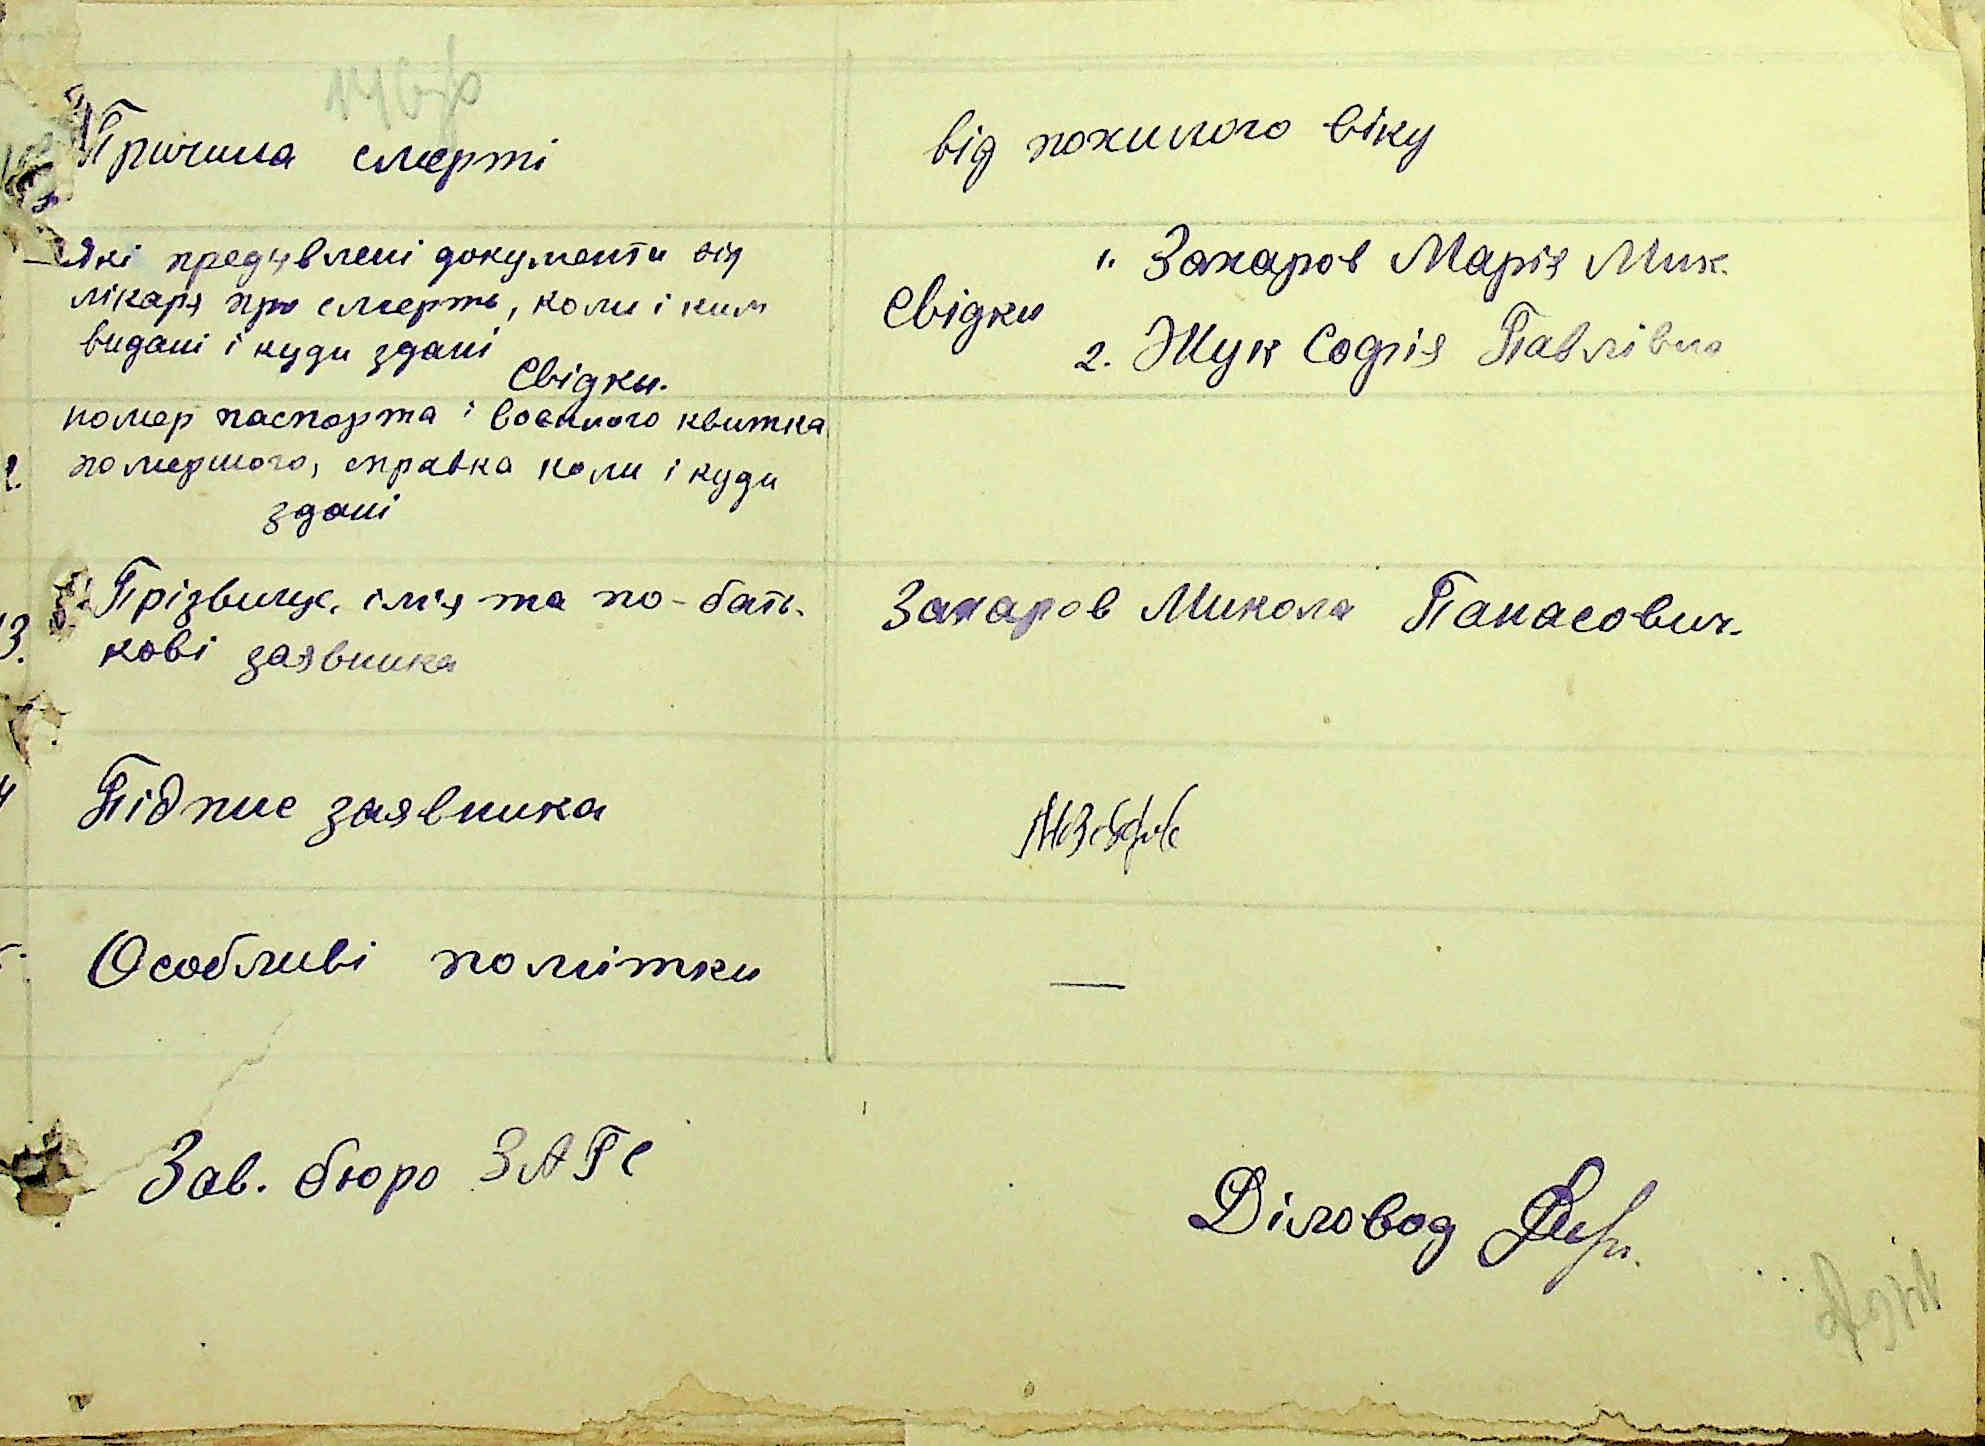 Причина смерті
від похилого віку
Які предявлені документи від
лікаря про смерть, коли і ким
видані і куди здані
Свідки.
Свідки
1. Захаров Марія Мик.
2. Жук Софія Павлівна
номер паспорта і воєнного квитка
2.
помершого, справка коли і куди
здані
13.
Прізвище, імія та по-бать-
кові заявника
Захаров Микола Панасович.
Підпис заявника
Особливі помітки
—
Зав. бюро ЗАГС
Діловод